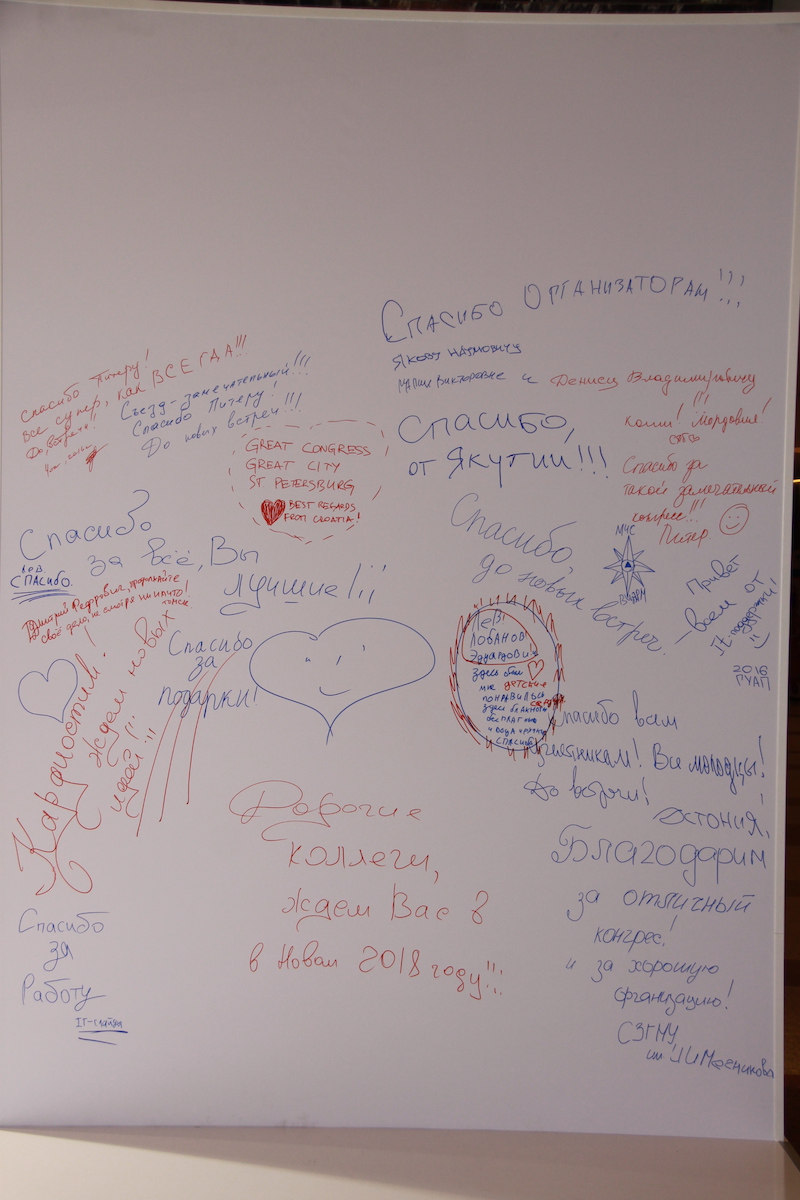 Спасибо Организаторам!!!
Якову Наумовичу
Марии Викторовне и Денису Владимировичу
Спасибо Питеру!
все супер, как ВСЕГДА!!!
До встречи!
Съезд - замечательный!!!
Спасибо Питеру!
До новых встреч!!!
GREAT CONGRESS
GREAT CITY
ST PETERSBURG
BEST REGARDS
FROM CROATIA!
Спасибо,
от Якутии!!!
Мордовия!
Спасибо за
такой замечательный
конгресс!!!
Питер
Спасибо
за всё, Вы
лучшие!!!
СПАСИБО.
продолжайте
своё дело, не смотря ни на что!
Томск
Спасибо,
до новых встреч.
МЧС
ВЦЭРМ
Привет
всем от
It-поддержки!
2016
ГУАП
Спасибо
за
подарки!
Кардиостим!
Ждем новых
идей!!!
Лобанов
Эдуардович
здесь был
мне детские
понравились
здесь
бесплатно
и вода
спасибо
Спасибо вам
участникам! Все молодцы!
До встречи!
Эстония!
Дорогие
коллеги,
ждем Вас в
в Новом 2018 году!!!
Благодарим
за отличный
конгрес!
и за хорошую
организацию!
СЗГМУ
им. И.И. Мечникова
Спасибо
за
Работу